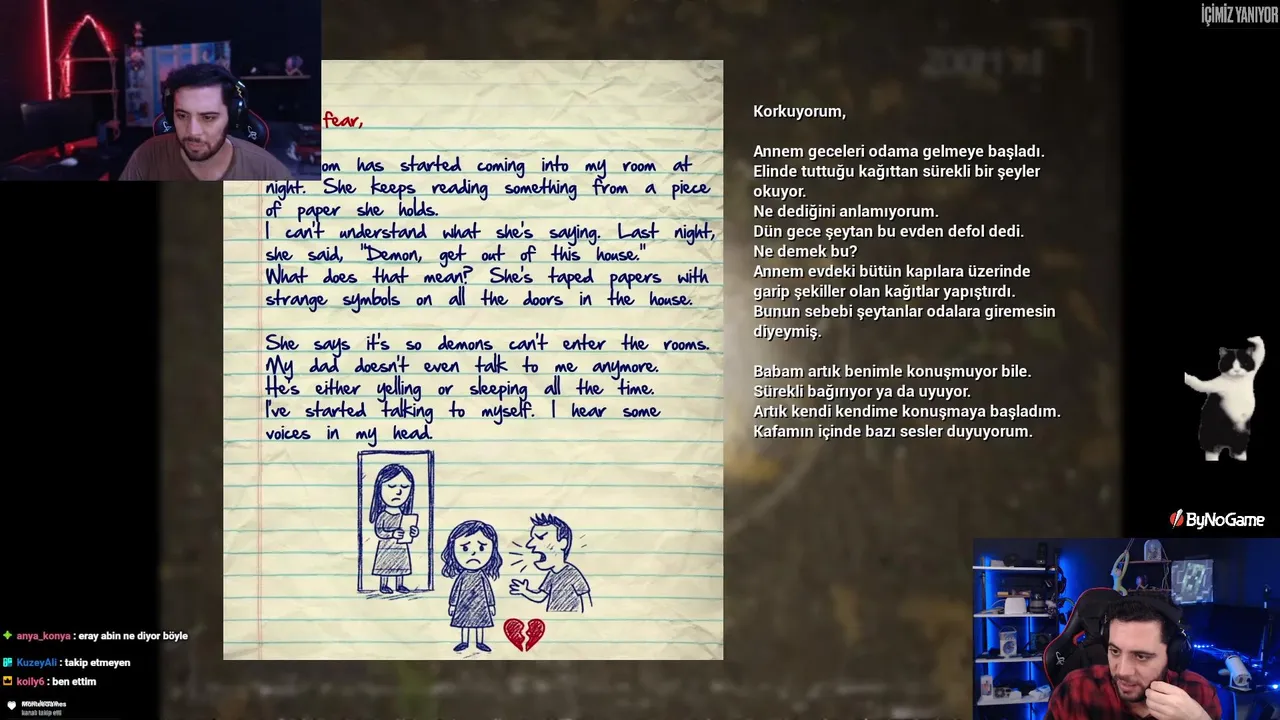 İÇİMİZ YANIYOR
fear,
om has started coming into my room at
night. She keeps reading something from a piece
of paper she holds.
I can't understand what she's saying. Last night,
she said, "Demon, get out of this house."
What does that mean? She's taped papers with
strange symbols on all the doors in the house.
She says it's so demons can't enter the rooms.
My dad doesn't even talk to me anymore.
He's either yelling or sleeping all the time.
I've started talking to myself. I hear some
voices in my head.
Korkuyorum,
Annem geceleri odama gelmeye başladı.
Elinde tuttuğu kağıttan sürekli bir şeyler
okuyor.
Ne dediğini anlamıyorum.
Dün gece şeytan bu evden defol dedi.
Ne demek bu?
Annem evdeki bütün kapılara üzerinde
garip şekiller olan kağıtlar yapıştırdı.
Bunun sebebi şeytanlar odalara giremesin
diyeymiş.
Babam artık benimle konuşmuyor bile.
Sürekli bağırıyor ya da uyuyor.
Artık kendi kendime konuşmaya başladım.
Kafamın içinde bazı sesler duyuyorum.
ByNoGame
anya_konya : eray abin ne diyor böyle
KuzeyAli : takip etmeyen
koily6 : ben ettim
kanalı takip etti